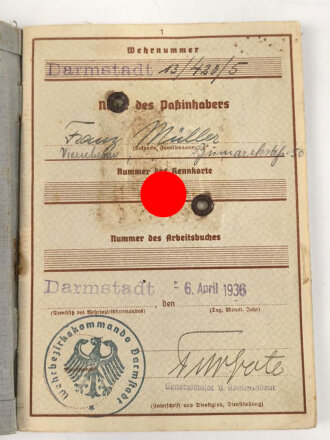 1
Wehrnummer
Darmstadt 13/420/5
Name des Paßinhabers
Franz Müller
(Rufname, Familienname)
Bismarckstr. 50
Nummer der Kennkarte
Nummer des Arbeitsbuches
Darmstadt, den - 6. April 1936
(Dienstsitz des Wehrbezirkskommandos) (Tag, Monat, Jahr)
Wehrbezirkskommando Darmstadt
Generalmajor u. Kommandeur
(Unterschrift und Dienstgrad, Dienststellung)